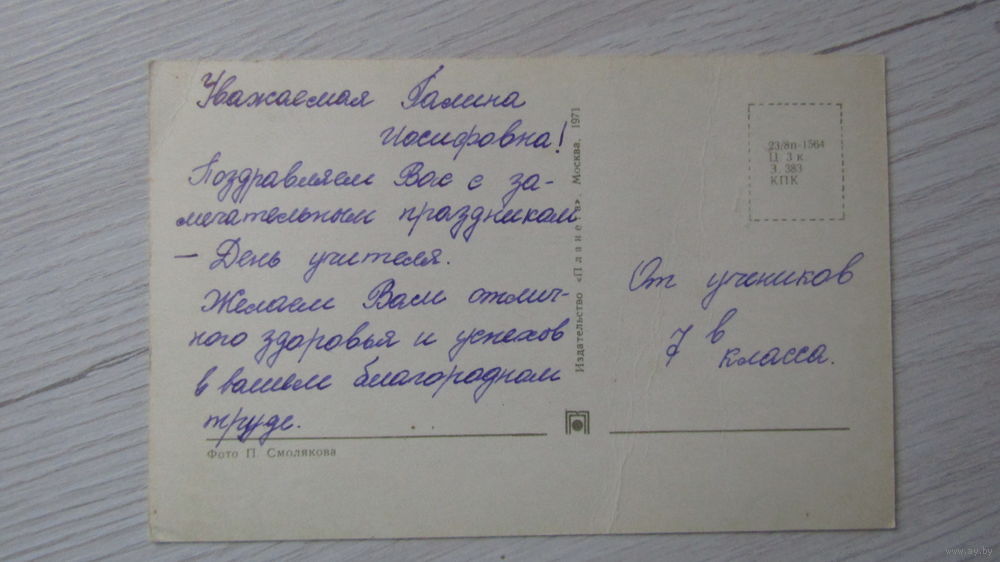 Уважаемая Галина
Иосифовна!
Поздравляем Вас с за-
мечательным праздником
– День учителя.
Желаем Вам отлич-
ного здоровья и успехов
в вашем благородном
труде.
Фото П. Смолякова
Издательство «Планета» Москва, 1971
23/8п-1564
Ц 3 к.
З. 383
КПК
От учеников
7 в
класса.
www.ay.by